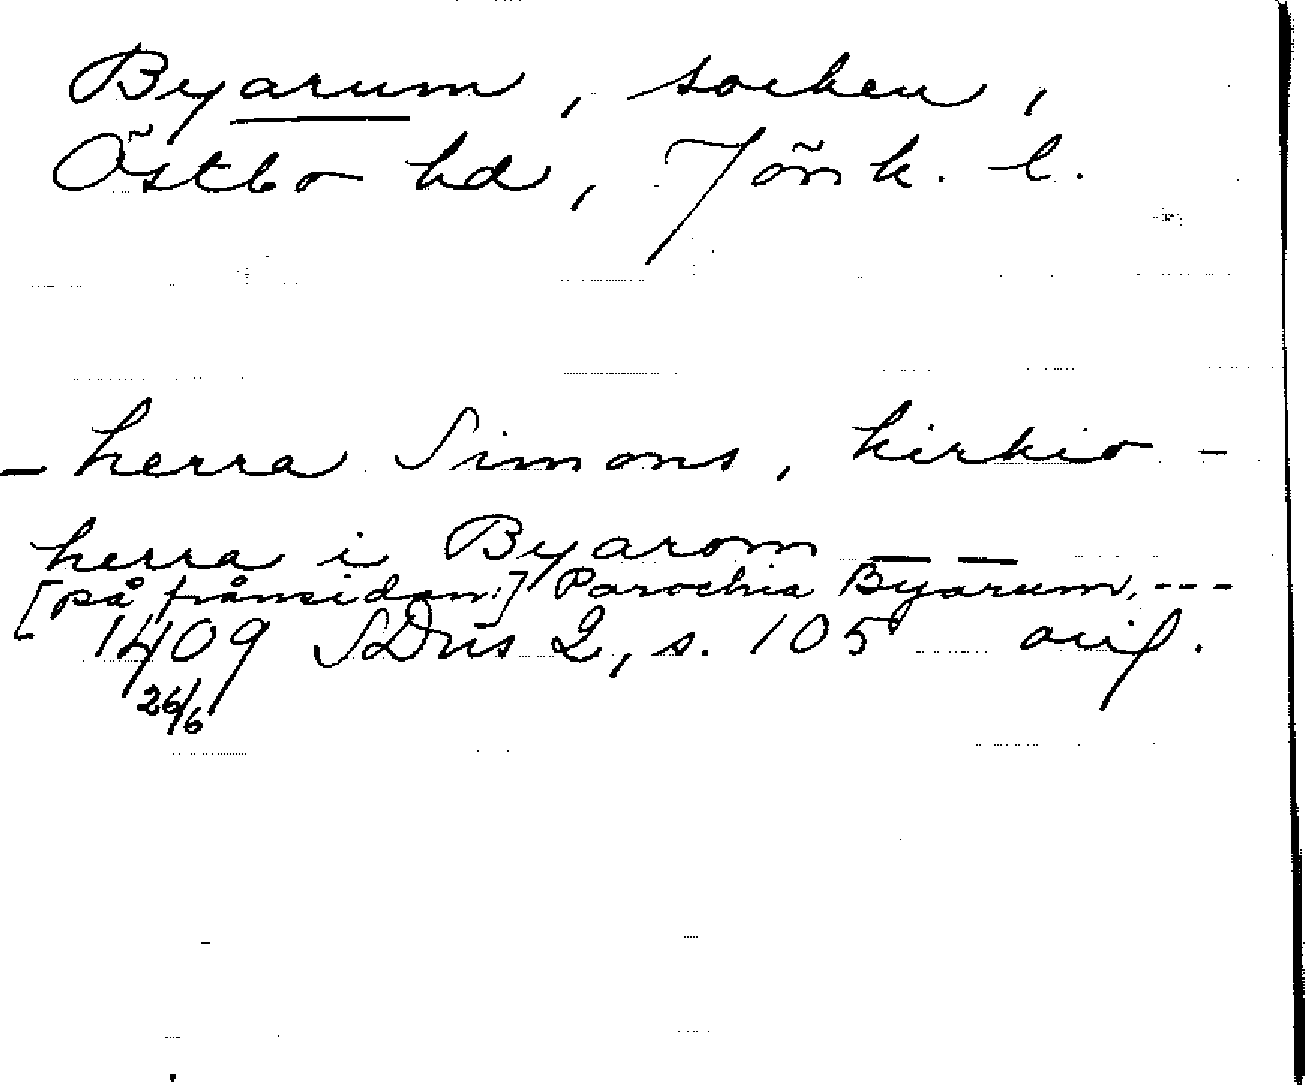 Byarum, socken,
Östbo hd, Jönk. l.
- herra Simons, kirkio -
herra i Byarom _ _
[på frånsidan:] Parochia Byarum, ---
1409 SDns 2, s. 105 avs.
26/6